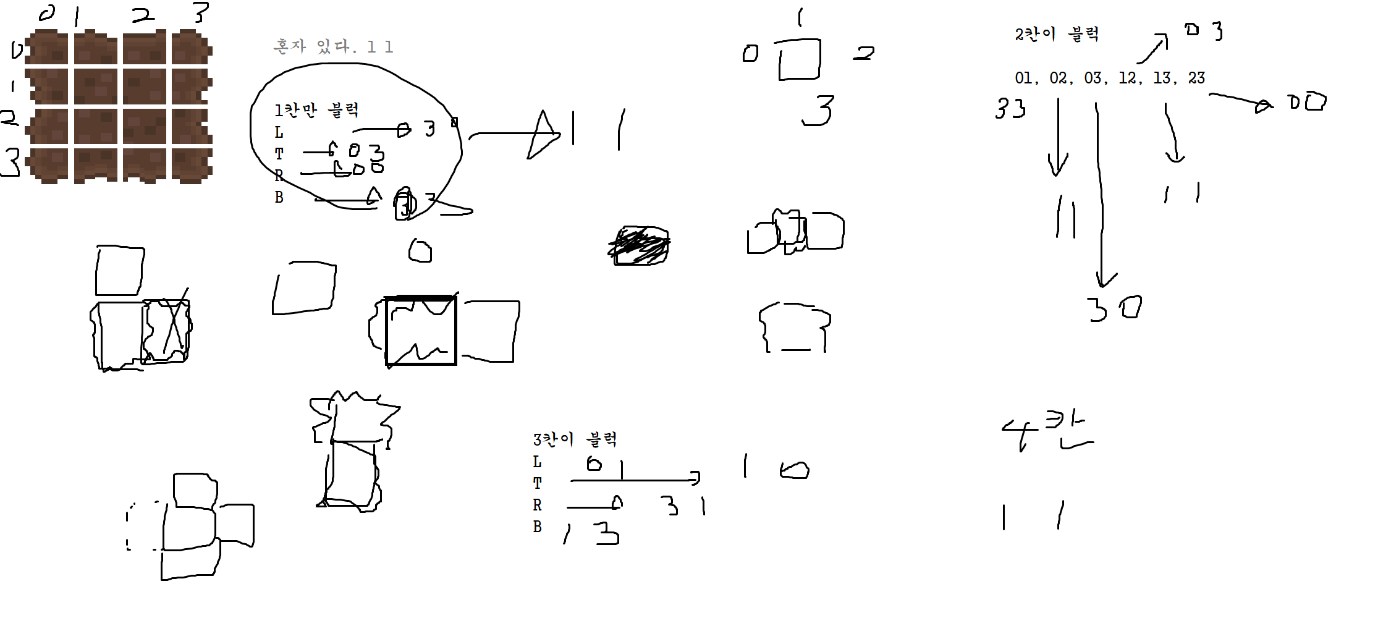 0 1 2 3
0
1
2
3
혼자 있다. 1 1
1칸만 블럭
L 3
T 03
R 00
B 3
1 1
1
0 2
3
2칸이 블럭
01, 02, 03, 12, 13, 23
03
33
00
11
11
30
3칸이 블럭
L 0 1 1 0
T
R 3 1
B 1 3
4칸
1 1